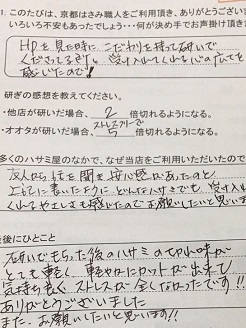 1. このたびは、京都はさみ職人をご利用頂き、ありがとうござい
いろいろ不安もあったでしょう・・・何が決め手でお声掛け頂き
HPを見た時に、こだわりを持って研いで
くださってる所と、受け入れてくれる心の広さを
感じたので!
研ぎの感想を教えてください。
・他店が研いだ場合、 2 倍切れるようになる。
ストレスフリーで
・オオタが研いだ場合、 5 倍切れるようになる。
多くのハサミ屋のなかで、なぜ当店をご利用いただいたので
友人から話を聞き安心感があったのと
上記に書いたように どんなハサミでも 受け入れ
くれるやさしさを感じたのでお願いしたいと思いま
最後にひとこと
研いでもらった後のハサミの切れ味が
とても軽く 軽やかにカットが出来て
気持ち良く ストレスが全くなかったです!!
ありがとうございました
また、お願いしたいと思います!!